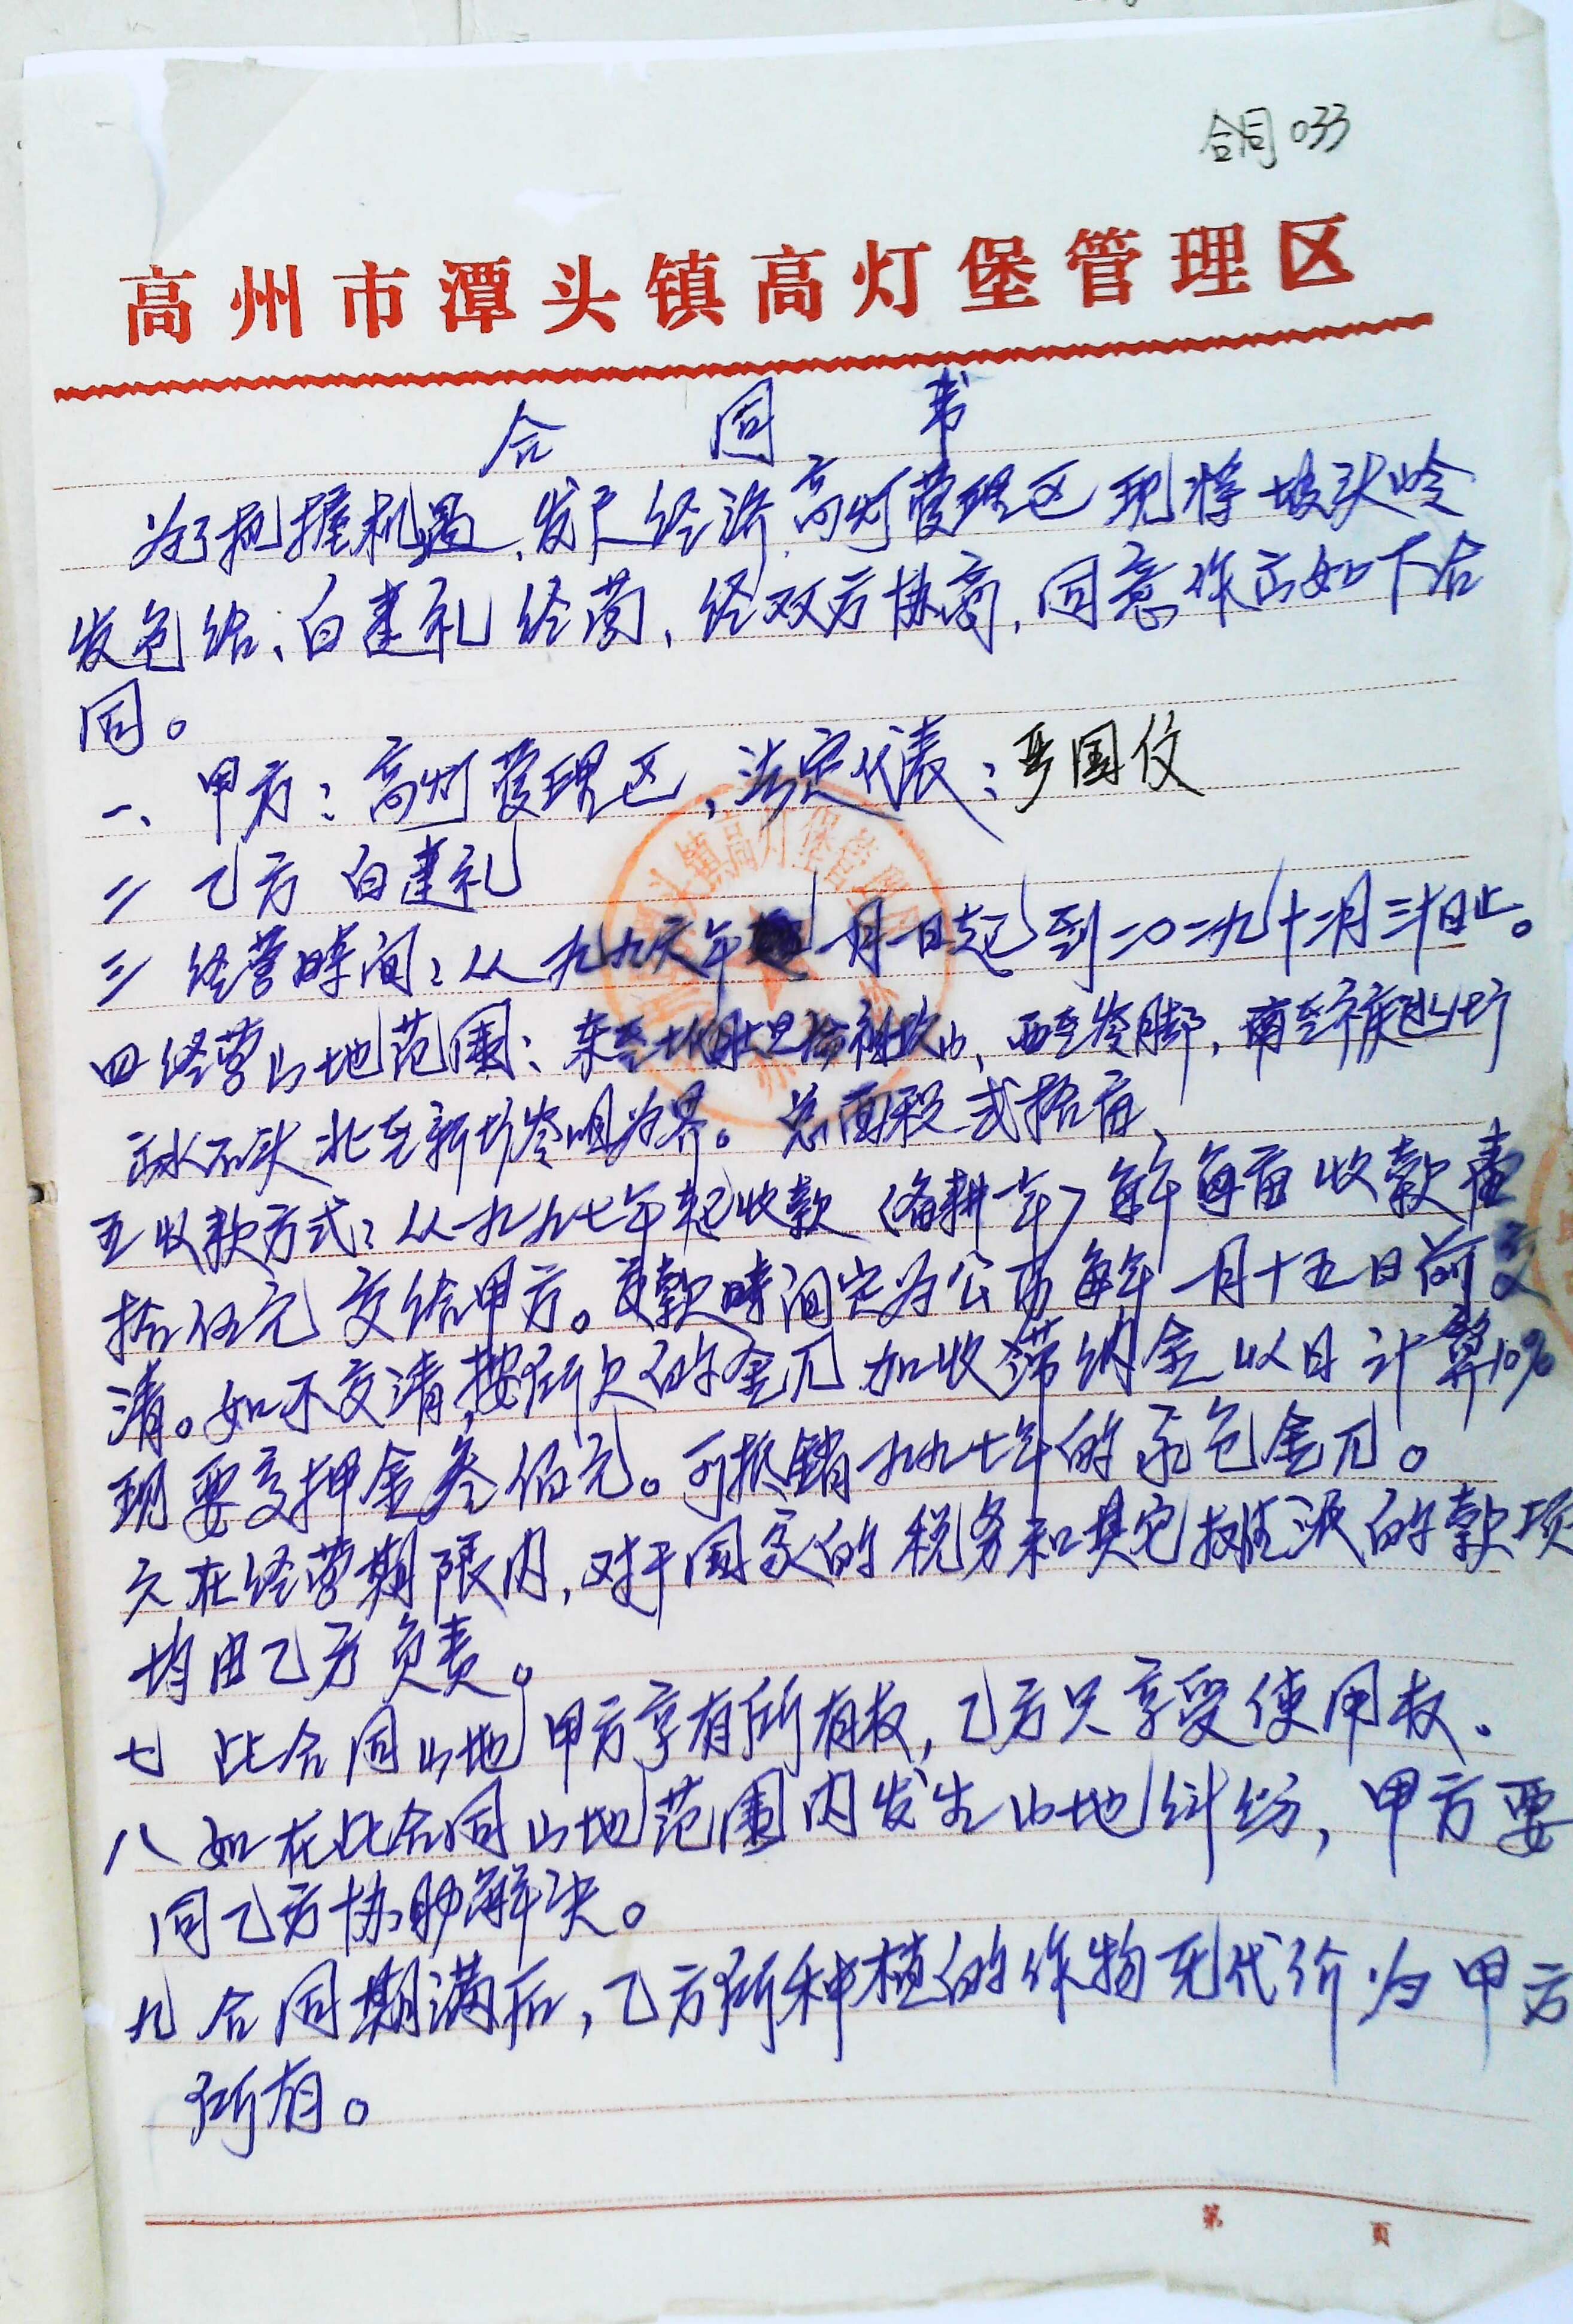 合同033
高州市潭头镇高灯堡管理区
合同书
为了把握机遇、发展经济、高灯管理区现将坡头岭
发包给、白建礼经营、经双方协商,同意作出如下合
同。
一、甲方:高灯管理区,法定代表:国仪
二 乙方 白建礼
三 经营时间:从九九六年一月一日起到二〇二九十二月三十日止。
四 经营山地范围:东至,西至岭脚,南至
北至新圹岭咀为界。总面积弍拾亩、
五 收款方式:从一九九七年起收款(备耕一年)每年每亩收款壹
拾伍元交给甲方。交款时间定为公历每年一月十五日前交
清。如不交清,按所欠的金额加收滞纳金以日计算10%
现要交押金叁佰元。可抵销一九九七年的承包金额。
六 在经营期限内,对于国家的税务和其它摊派的款项
均由乙方负责。
七 此合同山地甲方享有所有权,乙方只享受使用权.
八 如在此合同山地范围内发生山地纠纷,甲方要
同乙方协助解决。
九 合同期满后,乙方所种植的作物无代价为甲方
所有。
第 页